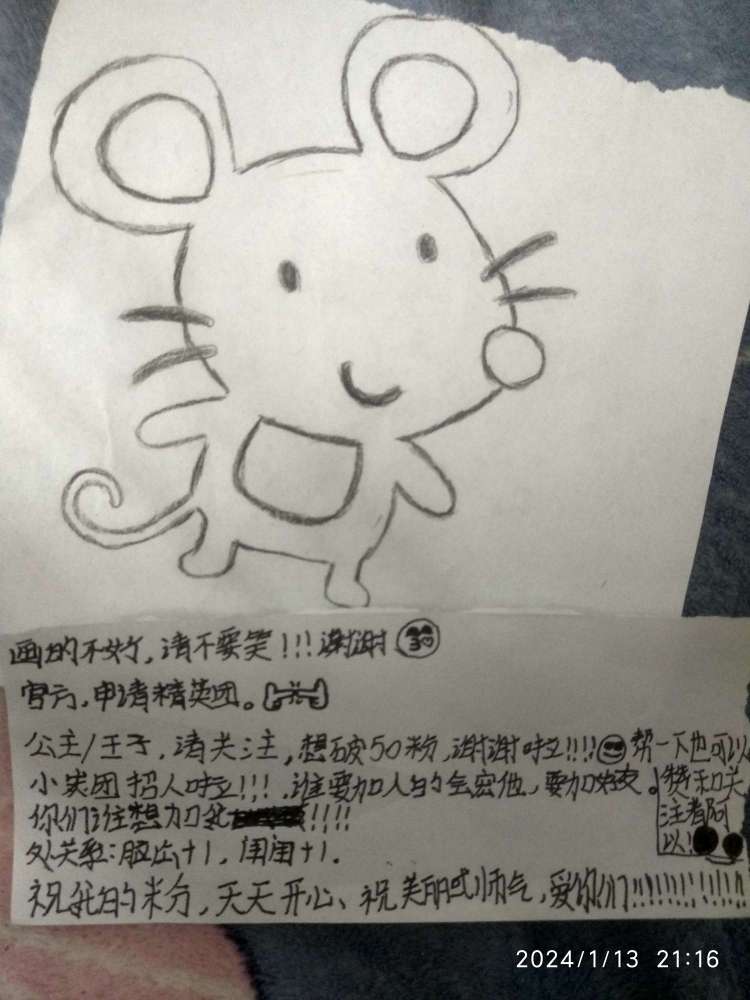 画的不好，请不要笑！！！谢谢
官方，申请精英团。
公主/王子，请关注，想破50粉，谢谢啦！！！！帮一下也可以
小炭团招人啦！！！，谁要加人的会宏他，要加好友。
赞和关
注者阿
以！
你们谁想加就！！！！
处关系：脑出+1，闺闺+1.
祝我的米分，天天开心、祝美丽或帅气，爱你们！！！！！！！！！！！
2024/1/13 21:16